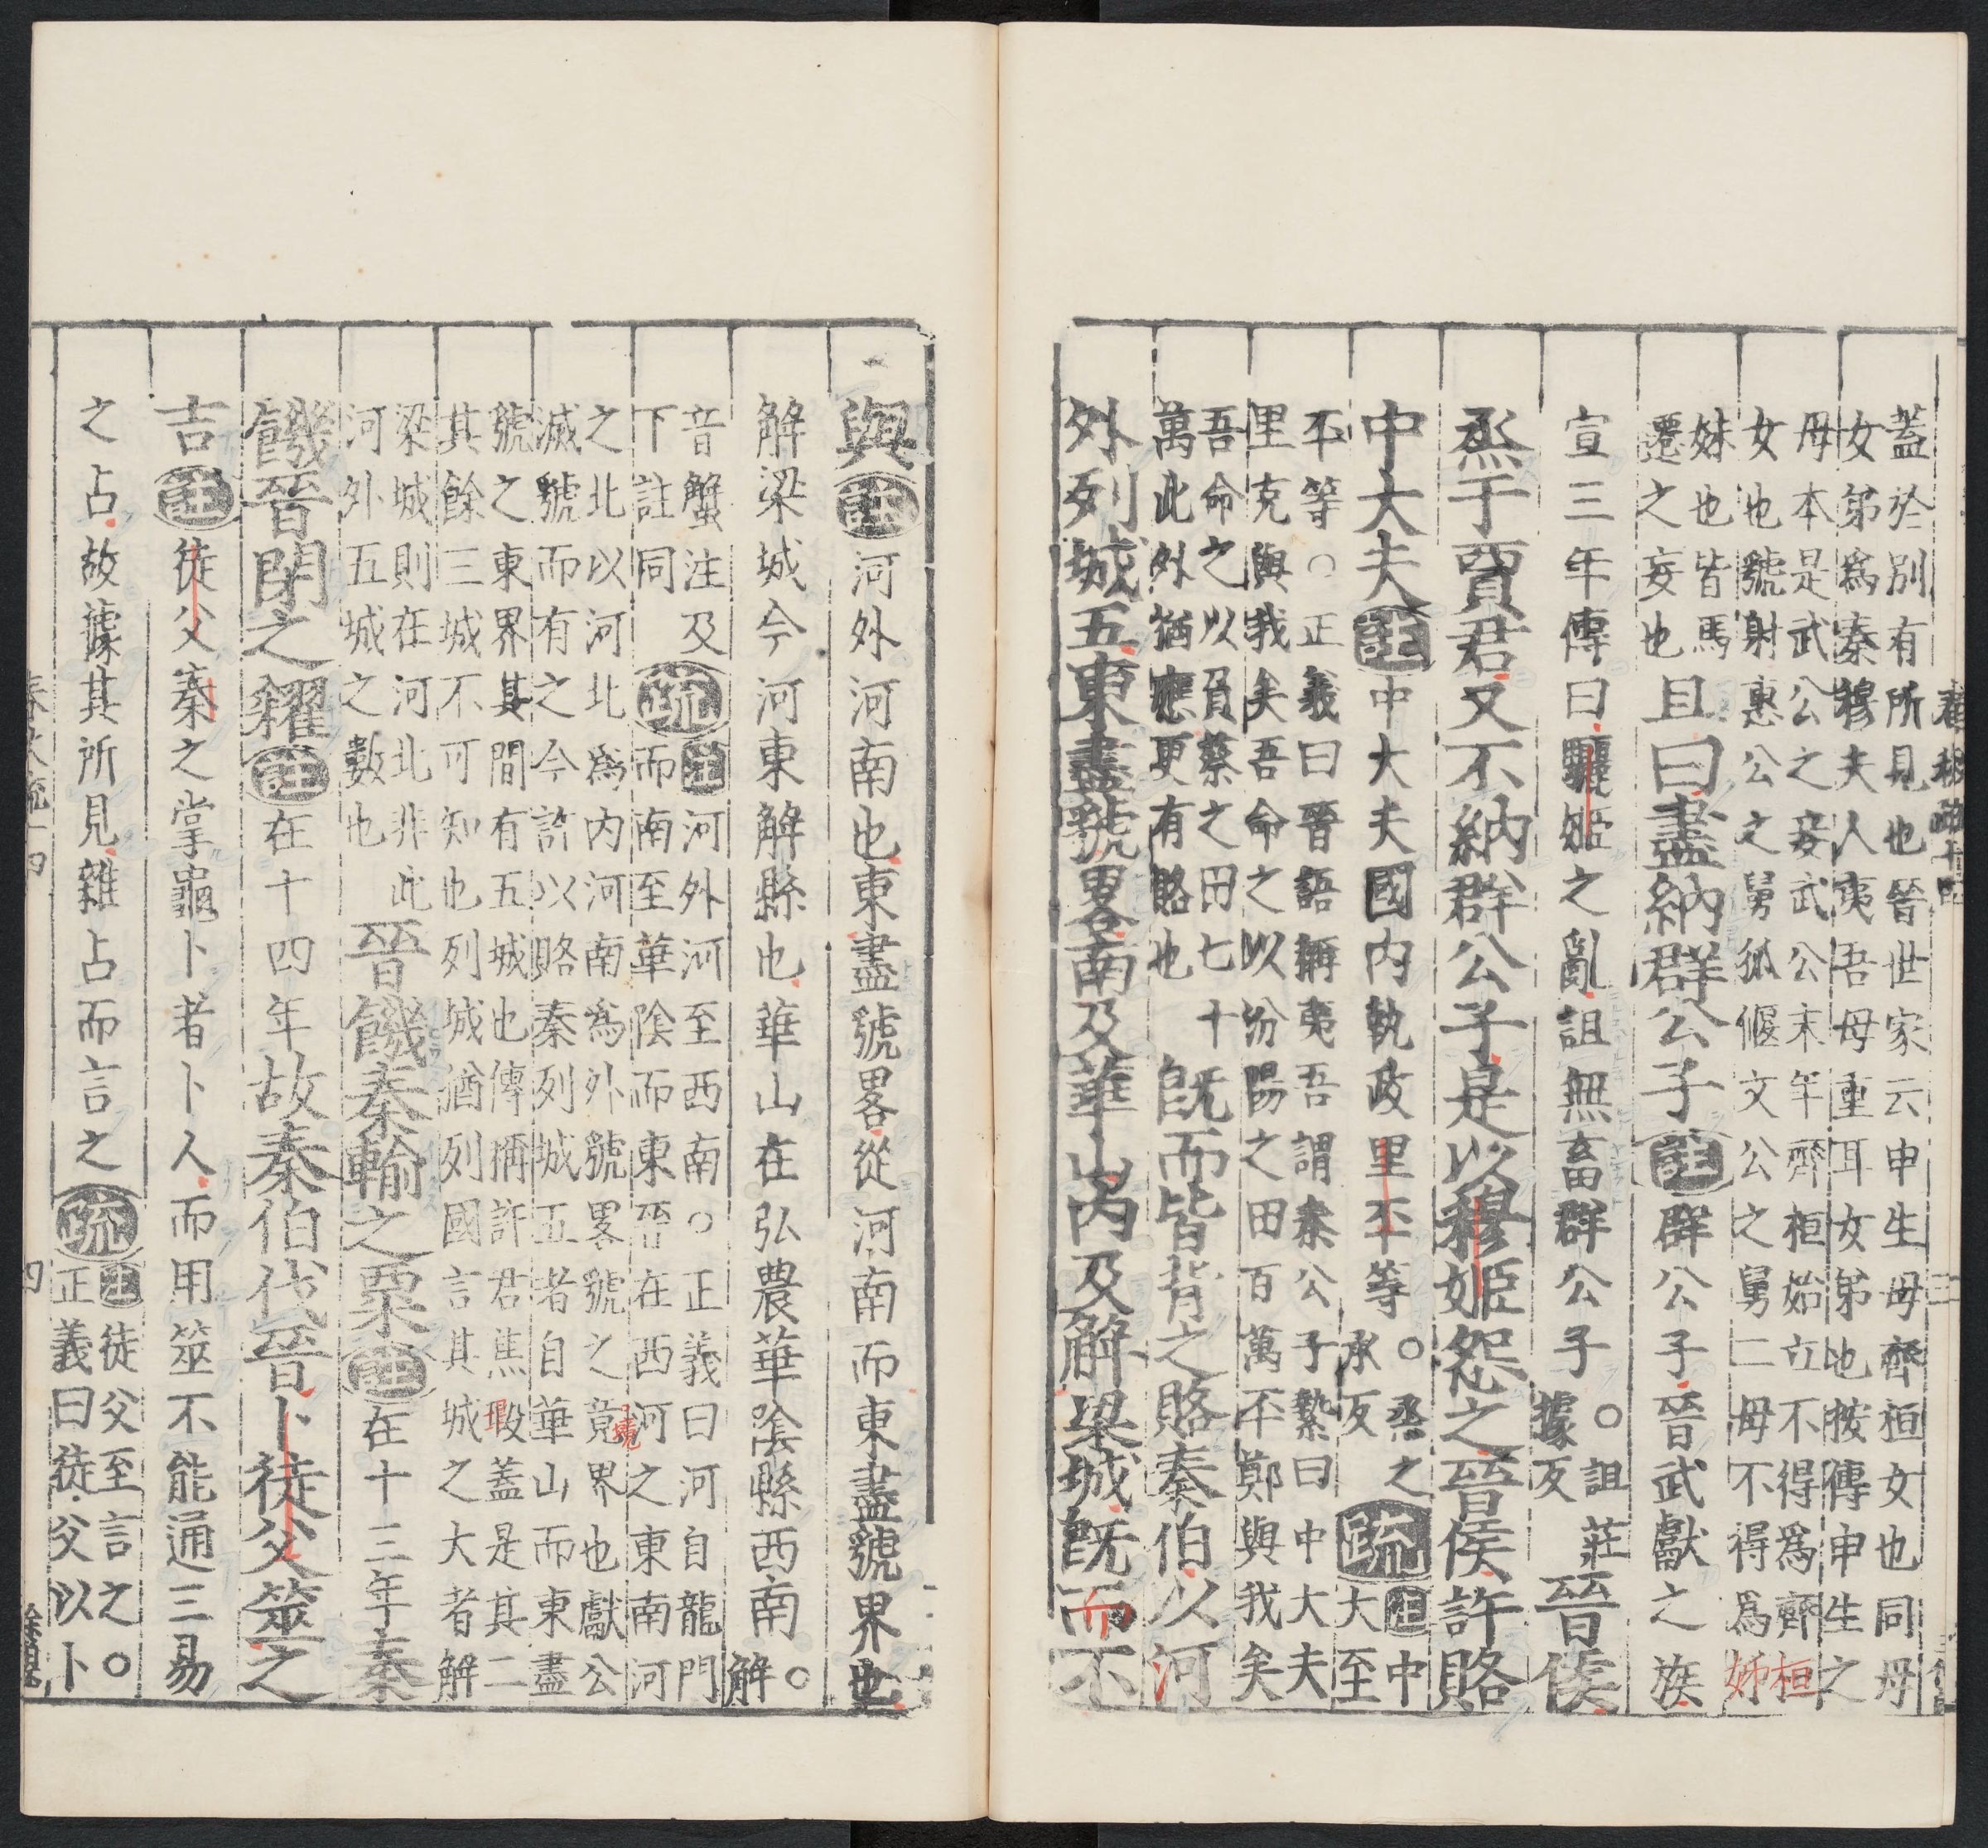 蓋於別有所見也晉世家云申生母齊桓女也同母
女弟爲秦穆夫人夷吾母重耳女弟也按傳申生之
母本是武公之妾武公末年齊桓始立不得爲齊桓
女也虢射惠公之舅狐偃文公之舅二母不得爲姊
妹也皆馬
遷之妄也
且曰盡納群公子
註
群公子晉武獻之族
宣三年傳曰驪姬之亂詛無畜群公子
○詛莊
據反
晉侯
烝于賈君又不納群公子是以穆姬怨之晉侯許賂
中大夫
註
中大夫國內執政里丕等
○烝之
承反
疏
註中
大至
丕等○正義曰晉語稱夷吾謂秦公子縶曰中大夫
里克與我矣吾命之以汾陽之田百萬丕鄭與我矣
吾命之以負蔡之田七十
萬此外猶應更有賂也
旣而皆背之賂秦伯以河
外列城五東盡虢畧南及華山內及解梁城旣而不
與
註
河外河南也東盡虢畧從河南而東盡虢界也
解梁城今河東解縣也華山在弘農華陰縣西南
○
解
音蟹注及
下註同
疏
註河外河至西南○正義曰河自龍門
而南南至華陰而東晉在西河之東南河
之北以河北爲內河南爲外虢畧虢之竟界也獻公
滅虢而有之今許以賂秦列城五者自華山而東盡
虢之東界其間有五城也傳稱許君焦瑕蓋是其二
其餘三城不可知也列城猶列國言其城之大者解
梁城則在河北非此
河外五城之數也
晉饑秦輸之粟
註
在十三年
秦
饑晉閉之糴
註
在十四年
故秦伯伐晉卜徒父筮之
吉
註
徒父秦之掌龜卜者卜人而用筮不能通三易
之占故據其所見雜占而言之
疏
註徒父至言之○
正義曰徒父以卜
四